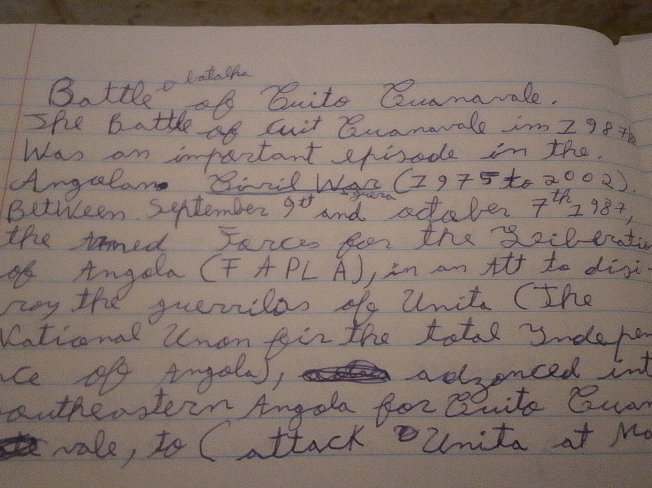 Battle batalha of Cuito Cuanavale.
The Battle of Cuit Cuanavale im 1987
Was an important episode in the.
Angolan Civil War (1975 to 2002).
guerra
Between September 9st and october 7th 1987,
the Armed Forces for the Leiberatio
of Angola (FAPLA), in an Att to disi-
roy the guerrilas of Unita (The
National Unon for the total Indepen
ce of Angola), advonced int
outheastern Angola for Cuito Cuan
vale, to (attack Unita at Ma